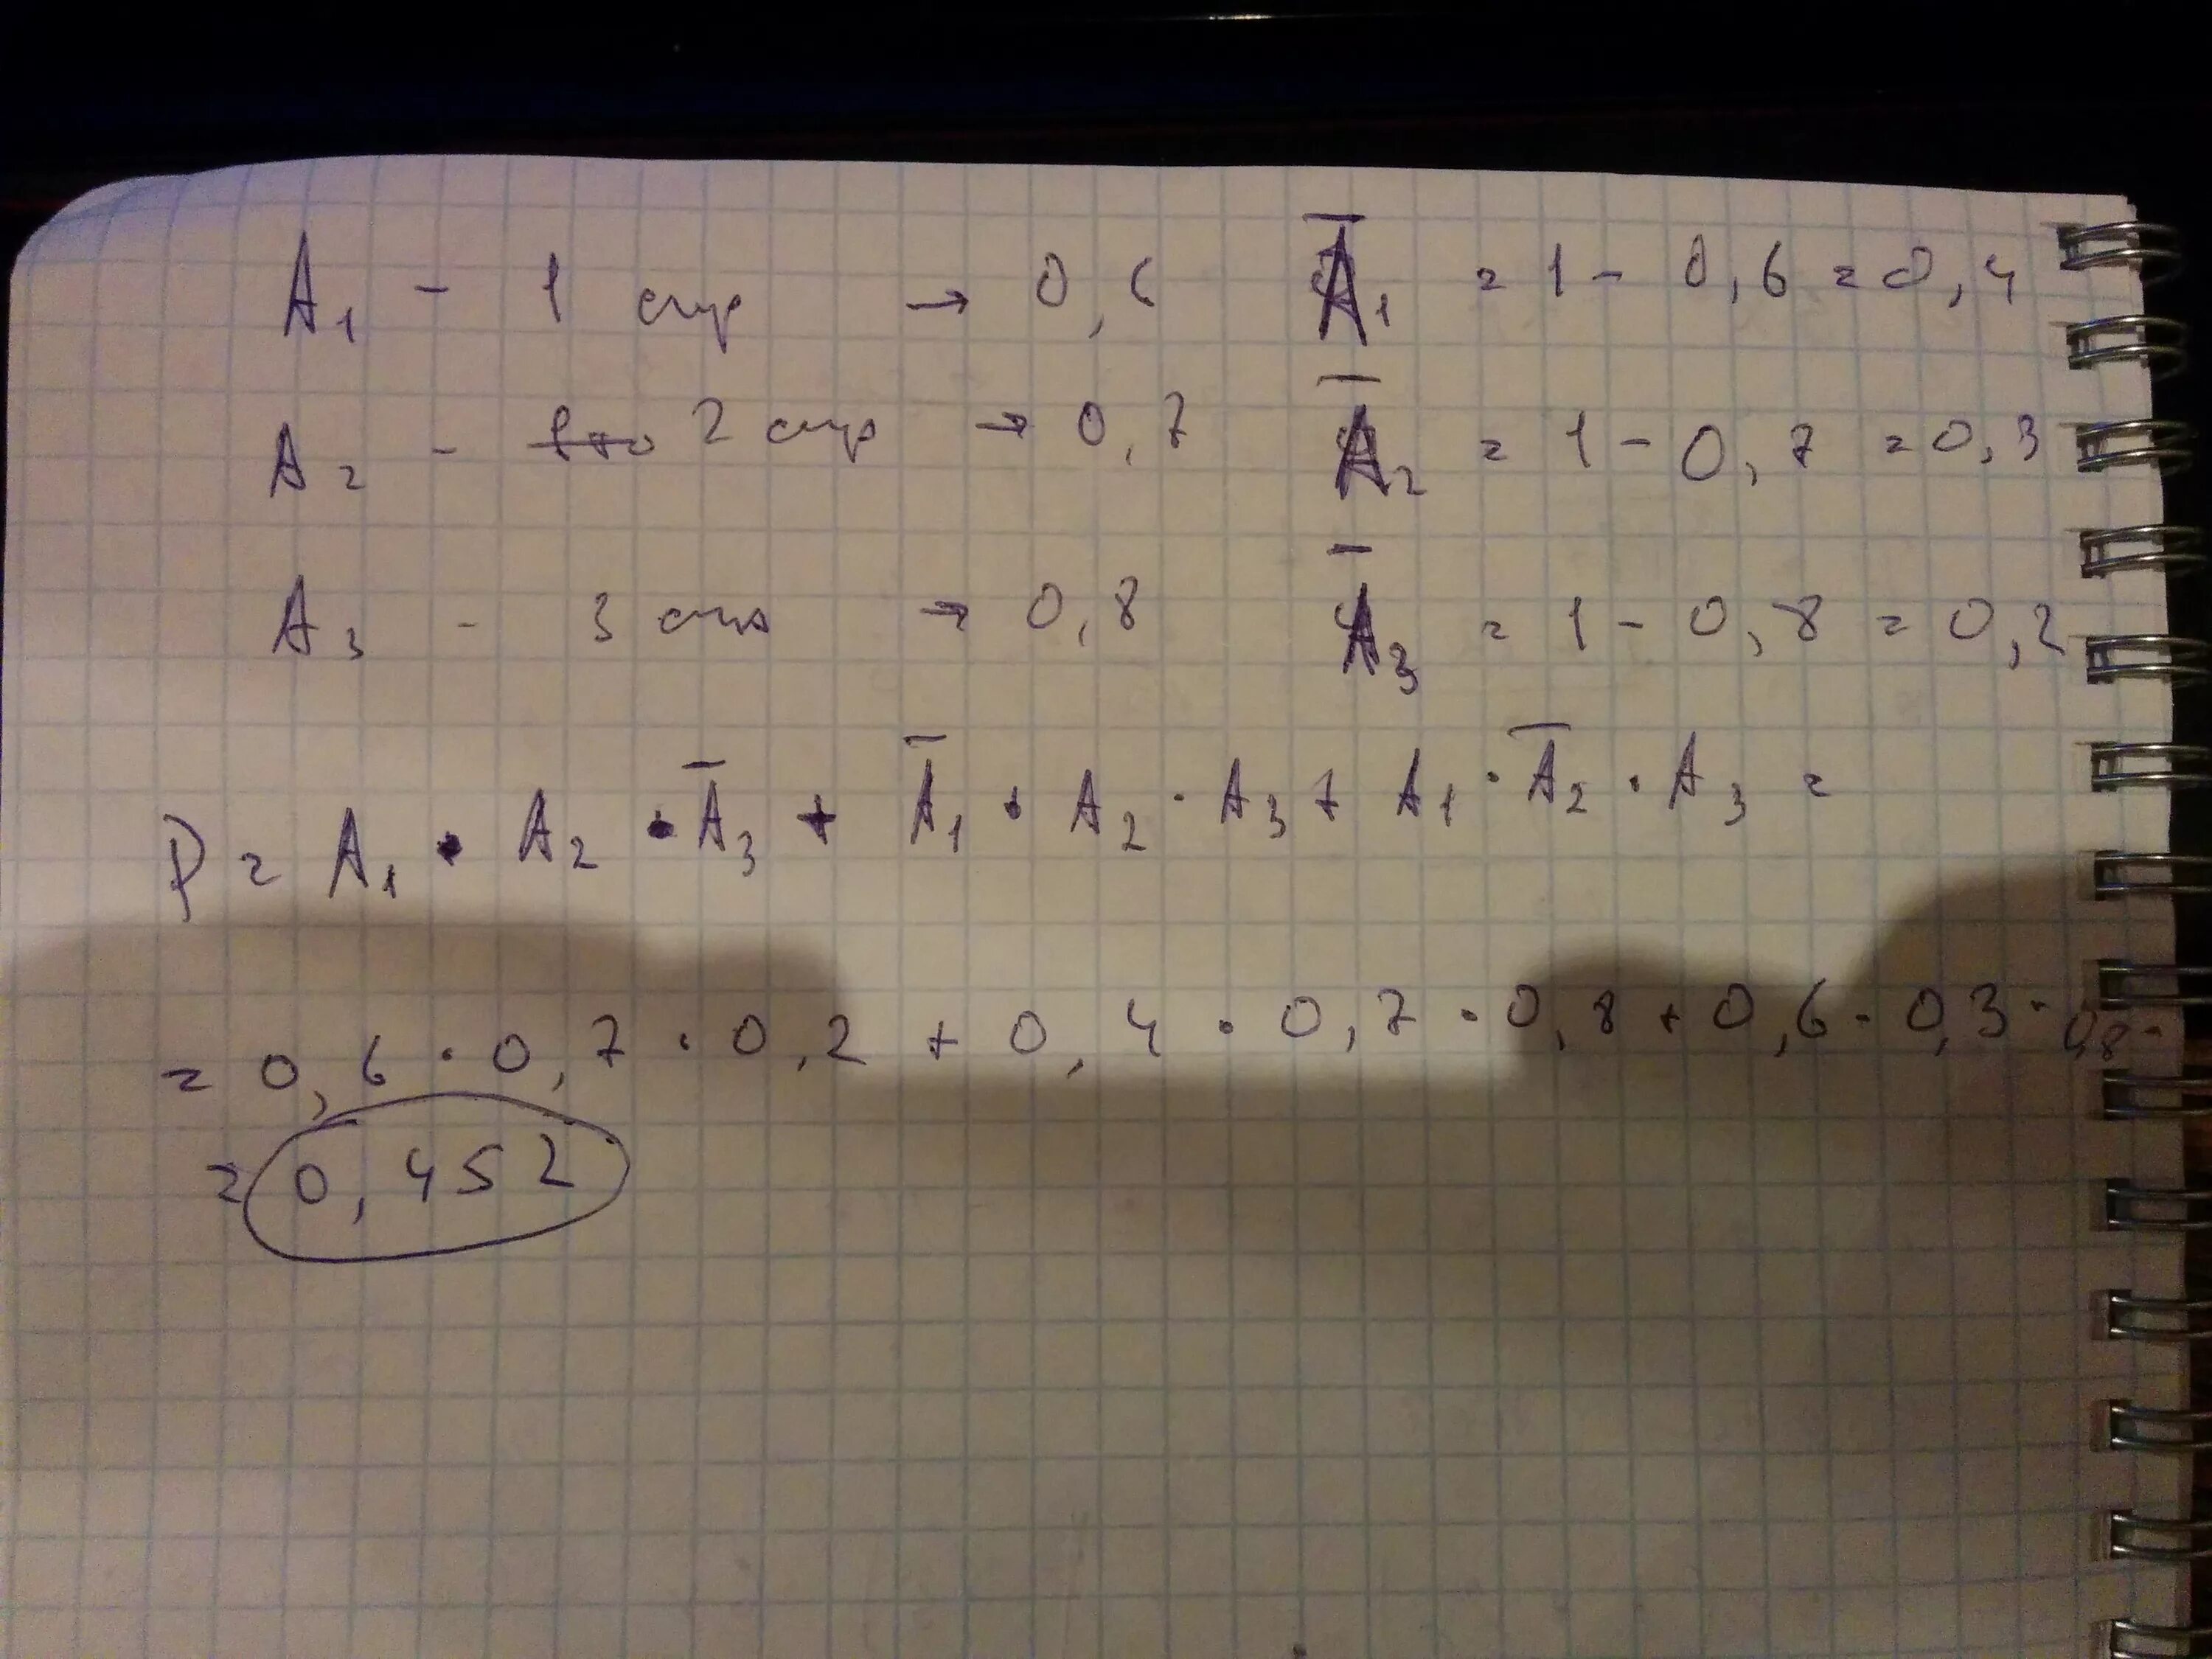 A₁ - 1 стр → 0,6 A̅₁ = 1 - 0,6 = 0,4
A₂ - 2 стр → 0,7 A̅₂ = 1 - 0,7 = 0,3
A₃ - 3 стр → 0,8 A̅₃ = 1 - 0,8 = 0,2
P = A₁ · A₂ · A̅₃ + A̅₁ · A₂ · A₃ + A₁ · A̅₂ · A₃ =
= 0,6 · 0,7 · 0,2 + 0,4 · 0,7 · 0,8 + 0,6 · 0,3 · 0,8 =
= 0,452